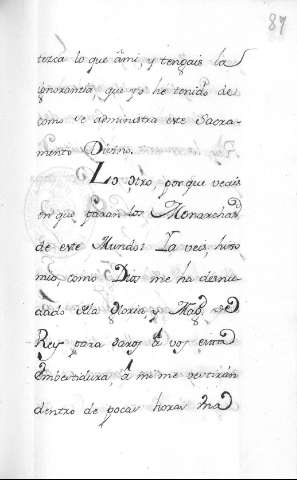 87
tezca lo que âmi, y tengais la
ignorantia, que yo he tenido de
como se administra este Sacra-
mento Divino.
Lo otro, porque veais
en que paran los Monarchas
de este Mundo: Ya veis, hijo
mio, como Dios me ha desnu-
dado de la Gloria y Magd. de
Rey para daros â vos esta
embestidura â mi me vestirán
dentro de pocas horas una